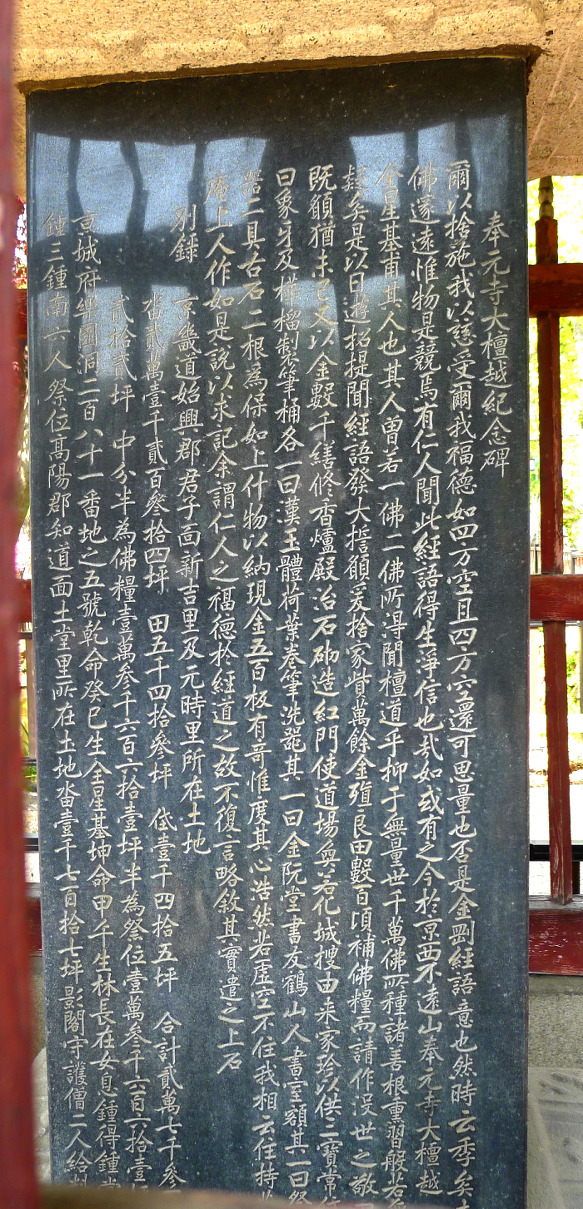 奉元寺大檀越紀念碑
爾以捨施我以慈受爾我福德如四方空且四方空還可思量也否是金剛經語意也然時云季矣
佛遂遠惟物是競焉有仁人聞此經語得生淨信也哉如或有之今於京西不遠山奉元寺大檀越
全星基甫其人也其人曾若一佛二佛所得聞檀道乎抑于無量世千萬佛所種諸善根重習般若
疑矣是以日遊招提聞經語發大誓願爰捨家貲萬餘金殖良田數百頃補佛糧而請作沒世之敬
既願猶未已又以金數千繕修香爐殿治石砌造紅門使道場奐若化城搜由來家珍以供三寶常
曰象牙及樺榴制筆桶各一曰漢玉體荷葉卷筆洗器其一曰金阮堂書友鶴山人畫室額其一曰祭
器二具古石二根為保如上什物以納現金五百板有哥惟度其心浩然若虛空不住我相云住持
庵上人作如是說以求記余謂仁人之福德於經道之故不復言略敘其實遣之上石
別錄 京畿道始興郡君子面新吉里及元時里所在土地
畓貳萬壹千貳百參拾四坪 田五千四拾參坪 垈壹千四拾五坪 合計貳萬七千參
貳拾貳坪 中分半為佛糧壹萬參千六百六拾壹坪半為祭位壹萬參千六百六拾壹坪
京城府樂園洞二百八十一番地之五號乾命癸巳生全星基坤命甲午生林長在女息鍾得鍾
鍾三鍾南六人祭位高陽郡知道面土堂里所在土地畓壹千七百拾七坪影閣守護僧二人給